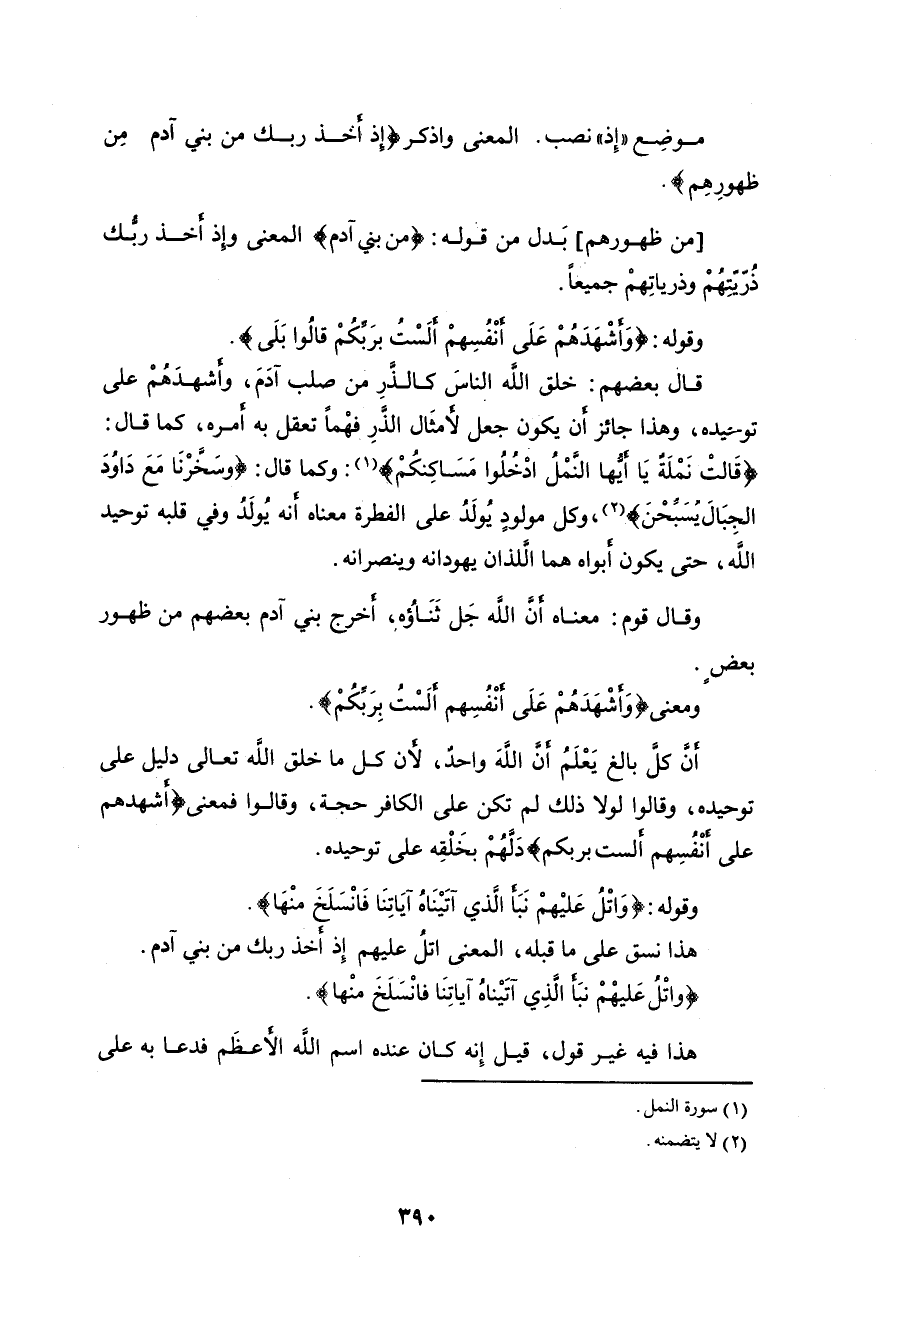 موضِع «إِذ» نصب. المعنى واذكر ﴿إِذ أَخذ ربك من بني آدم مِن
ظهورِهِم﴾.
[من ظهورهم] بَدل من قوله: ﴿من بني آدم﴾ المعنى وإِذ أَخذ ربُّك
ذُرّيَّتِهُمْ وذرياتِهِمْ جميعاً.
وقوله: ﴿وَأَشْهَدَهُمْ عَلَى أَنْفُسِهِمْ أَلَسْتُ بِرَبِّكُمْ قالُوا بَلَى﴾.
قال بعضهم: خلق اللَّه الناسَ كالذَّرِ من صلب آدَمَ، وأَشهدَهُمْ على
توحيده، وهذا جائز أَن يكون جعل لأَمثَال الذَّرِ فهْماً تعقل به أَمره، كما قال:
﴿قَالَتْ نَمْلَةٌ يَا أَيُّها النَّمْلُ ادْخُلُوا مَسَاكِنكُمْ﴾(١): وكما قال: ﴿وسَخَّرْنَا مَعَ دَاوُدَ
الجِبَالَ يُسَبِّحْنَ﴾(٢)، وكل مولودٍ يُولَدُ على الفطرة معناه أَنه يُولَدُ وفي قلبه توحيد
اللَّه، حتى يكون أَبواه هما اللَّذان يهودانه وينصرانه.
وقال قوم: معناه أَنَّ اللَّه جَل ثَنَاؤُه، أَخرج بني آدم بعضهم من ظهور
بعضٍ.
ومعنى ﴿وَأَشْهَدَهُمْ عَلَى أَنْفُسِهم أَلَسْتُ بِرَبِّكُمْ﴾.
أَنَّ كلَّ بالغ يَعْلَمُ أَنَّ اللَّهَ واحدٌ، لأَن كل ما خلق اللَّه تعالى دليل على
توحيده، وقالوا لولا ذلك لم تكن على الكافر حجة، وقالوا فمعنى ﴿أَشهدهم
على أَنْفُسِهم أَلست بربكم﴾ دَلَّهُمْ بخَلْقِه على توحيده.
وقوله: ﴿وَاتْلُ عَلَيْهِمْ نَبَأَ الَّذي آتَيْنَاهُ آيَاتِنَا فَانْسَلَخَ منْهَا﴾.
هذا نسق على ما قبله، المعنى اتلُ عليهم إِذ أَخذ ربك من بني آدم.
﴿واتْلُ عَليهْمْ نبَأَ الَّذِي آتَيْناهُ آياتِنَا فانْسَلَخَ منْها﴾.
هذا فيه غير قول، قيل إِنه كان عنده اسم اللَّه الأَعظَم فدعا به على
(١) سورة النمل.
(٢) لا يتضمنه.
٣٩٠